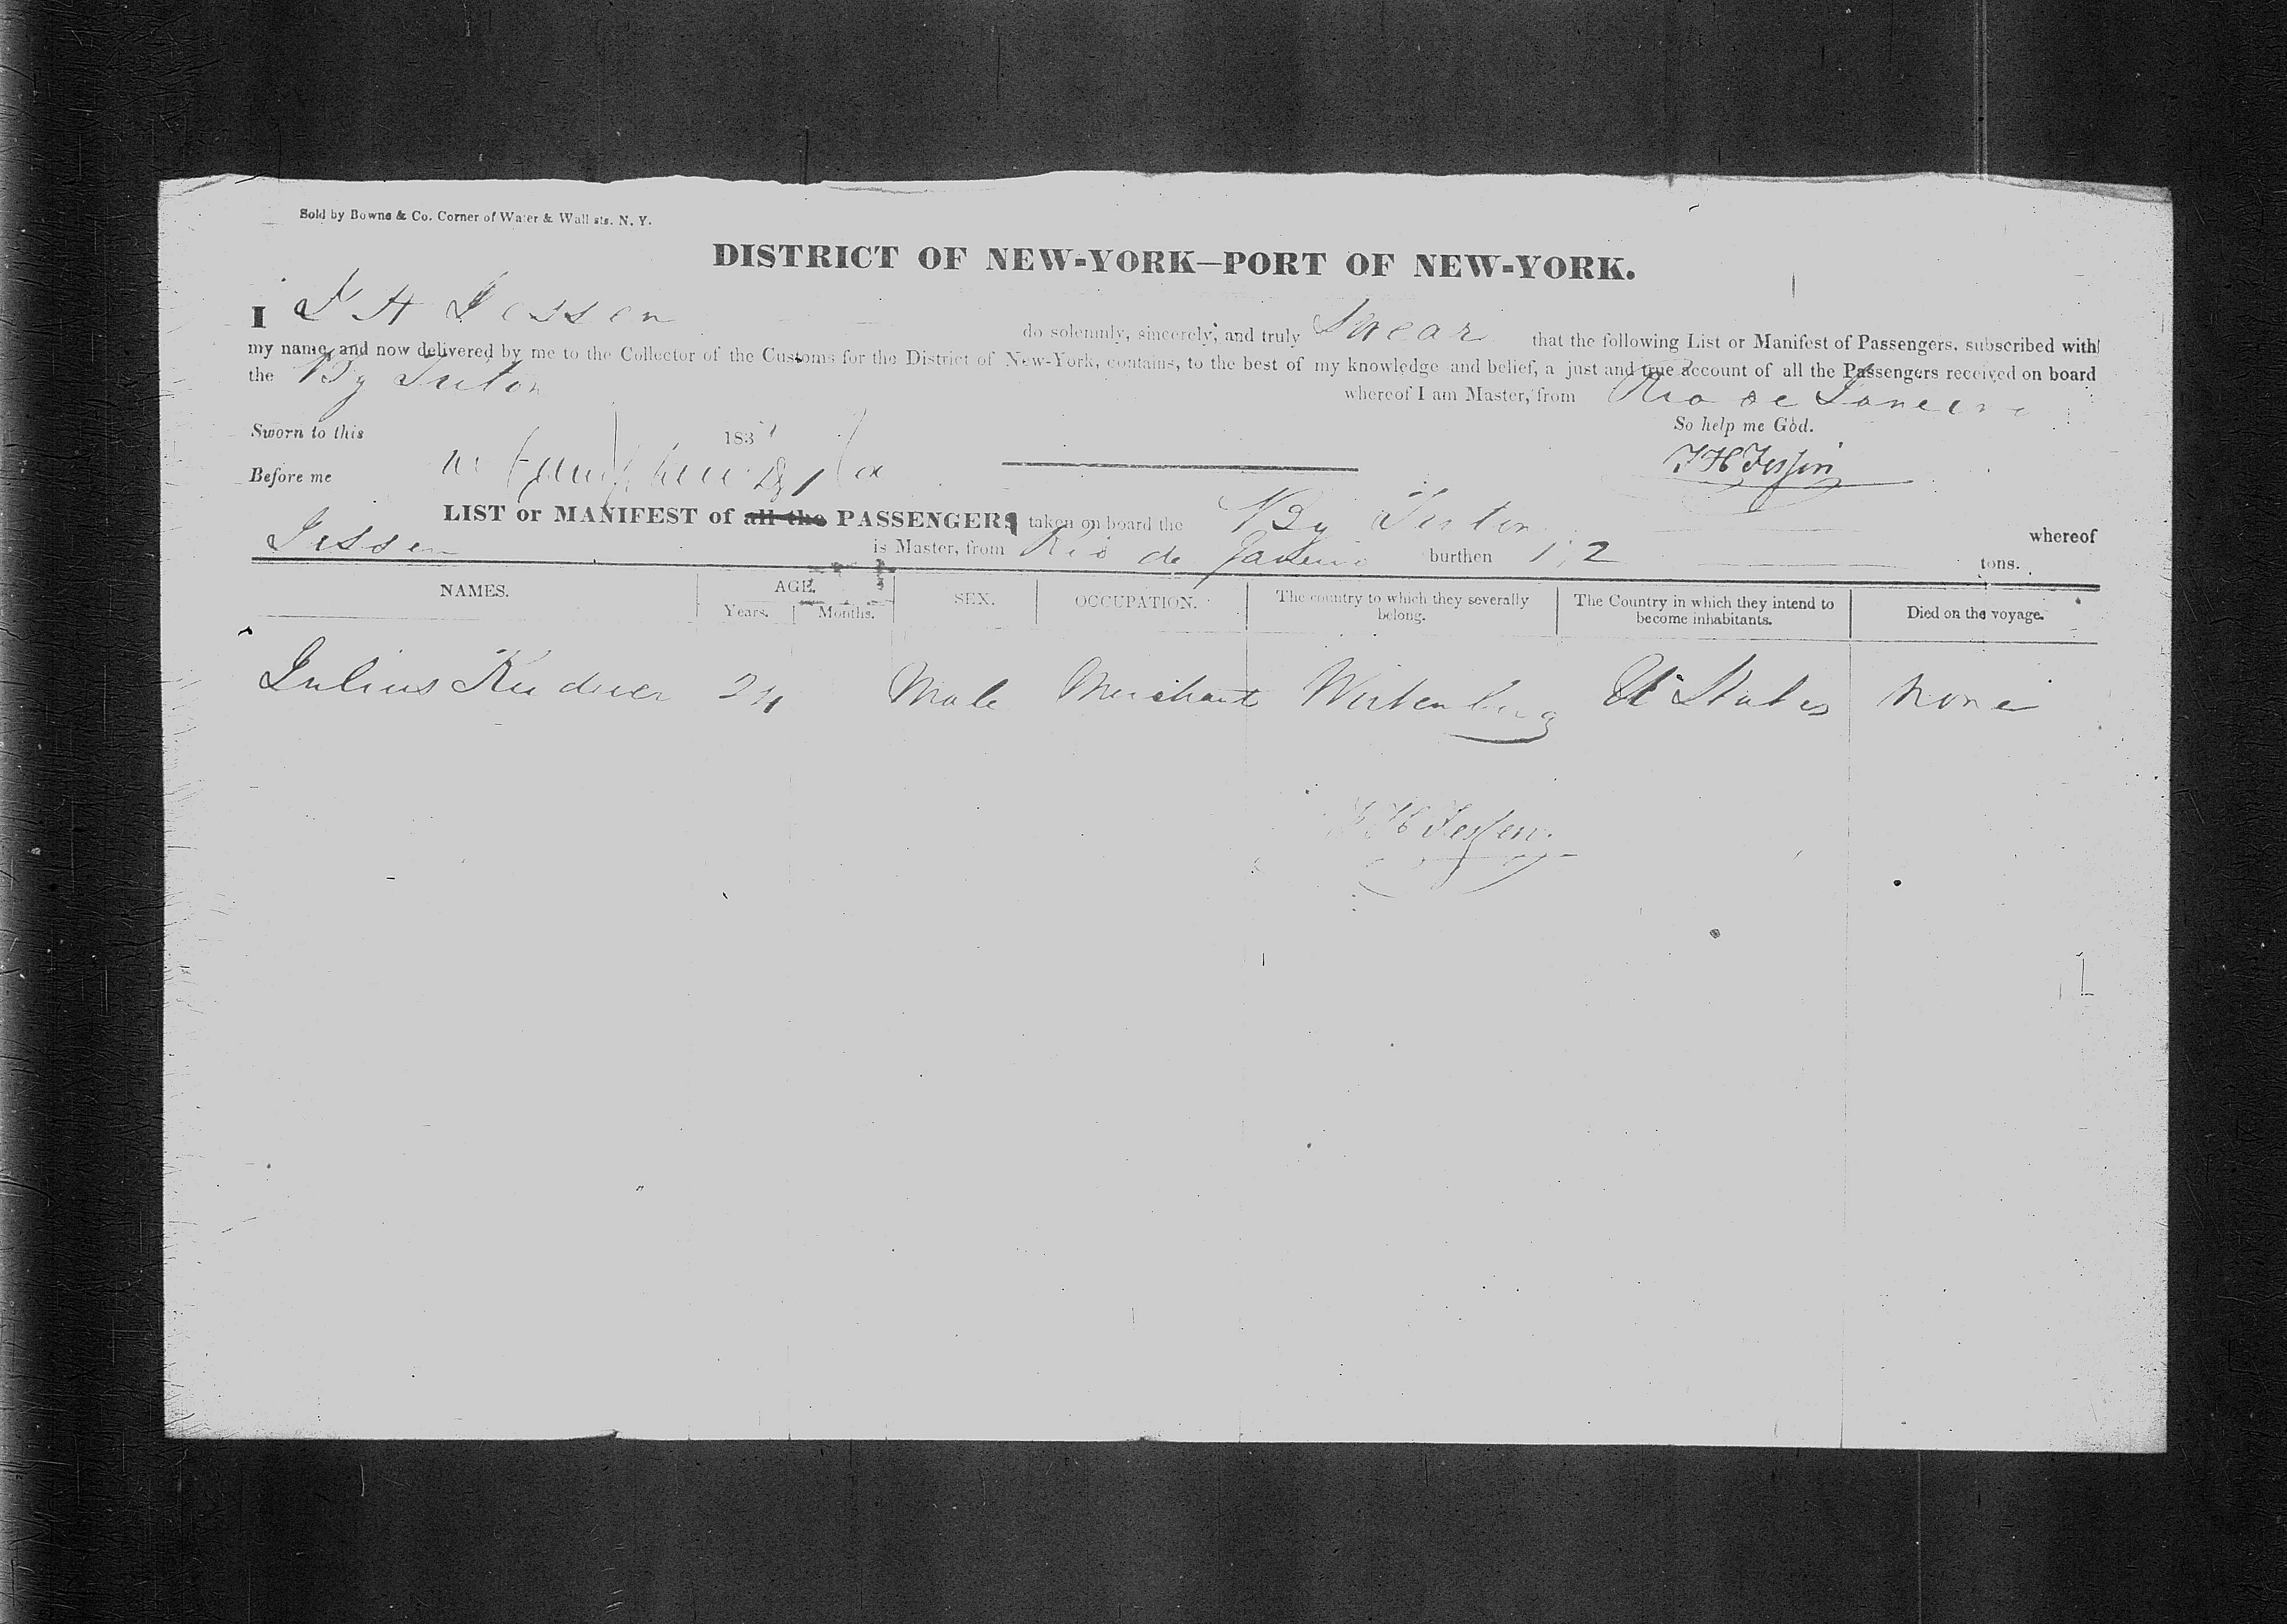 Sold by Bowne & Co. Corner of Water & Wall sts. N. Y.
DISTRICT OF NEW-YORK—PORT OF NEW-YORK.
I J H Jessen do solemnly, sincerely, and truly Swear that the following List or Manifest of Passengers, subscribed with
my name, and now delivered by me to the Collector of the Customs for the District of New-York, contains, to the best of my knowledge and belief, a just and true account of all the Passengers received on board
the Bg whereof I am Master, from Rio de Janeiro
So help me God.
Sworn to this 183
J H Jessen
Before me
LIST or MANIFEST of all the PASSENGERS taken on board the Bg whereof
Jessen is Master, from Rio de Janeiro burthen tons.
NAMES. AGE. SEX. OCCUPATION. The country to which they severally belong. The Country in which they intend to become inhabitants. Died on the voyage.
Years. Months.
Julius 24 Male Merchant Wirtenberg U States none
J H Jessen